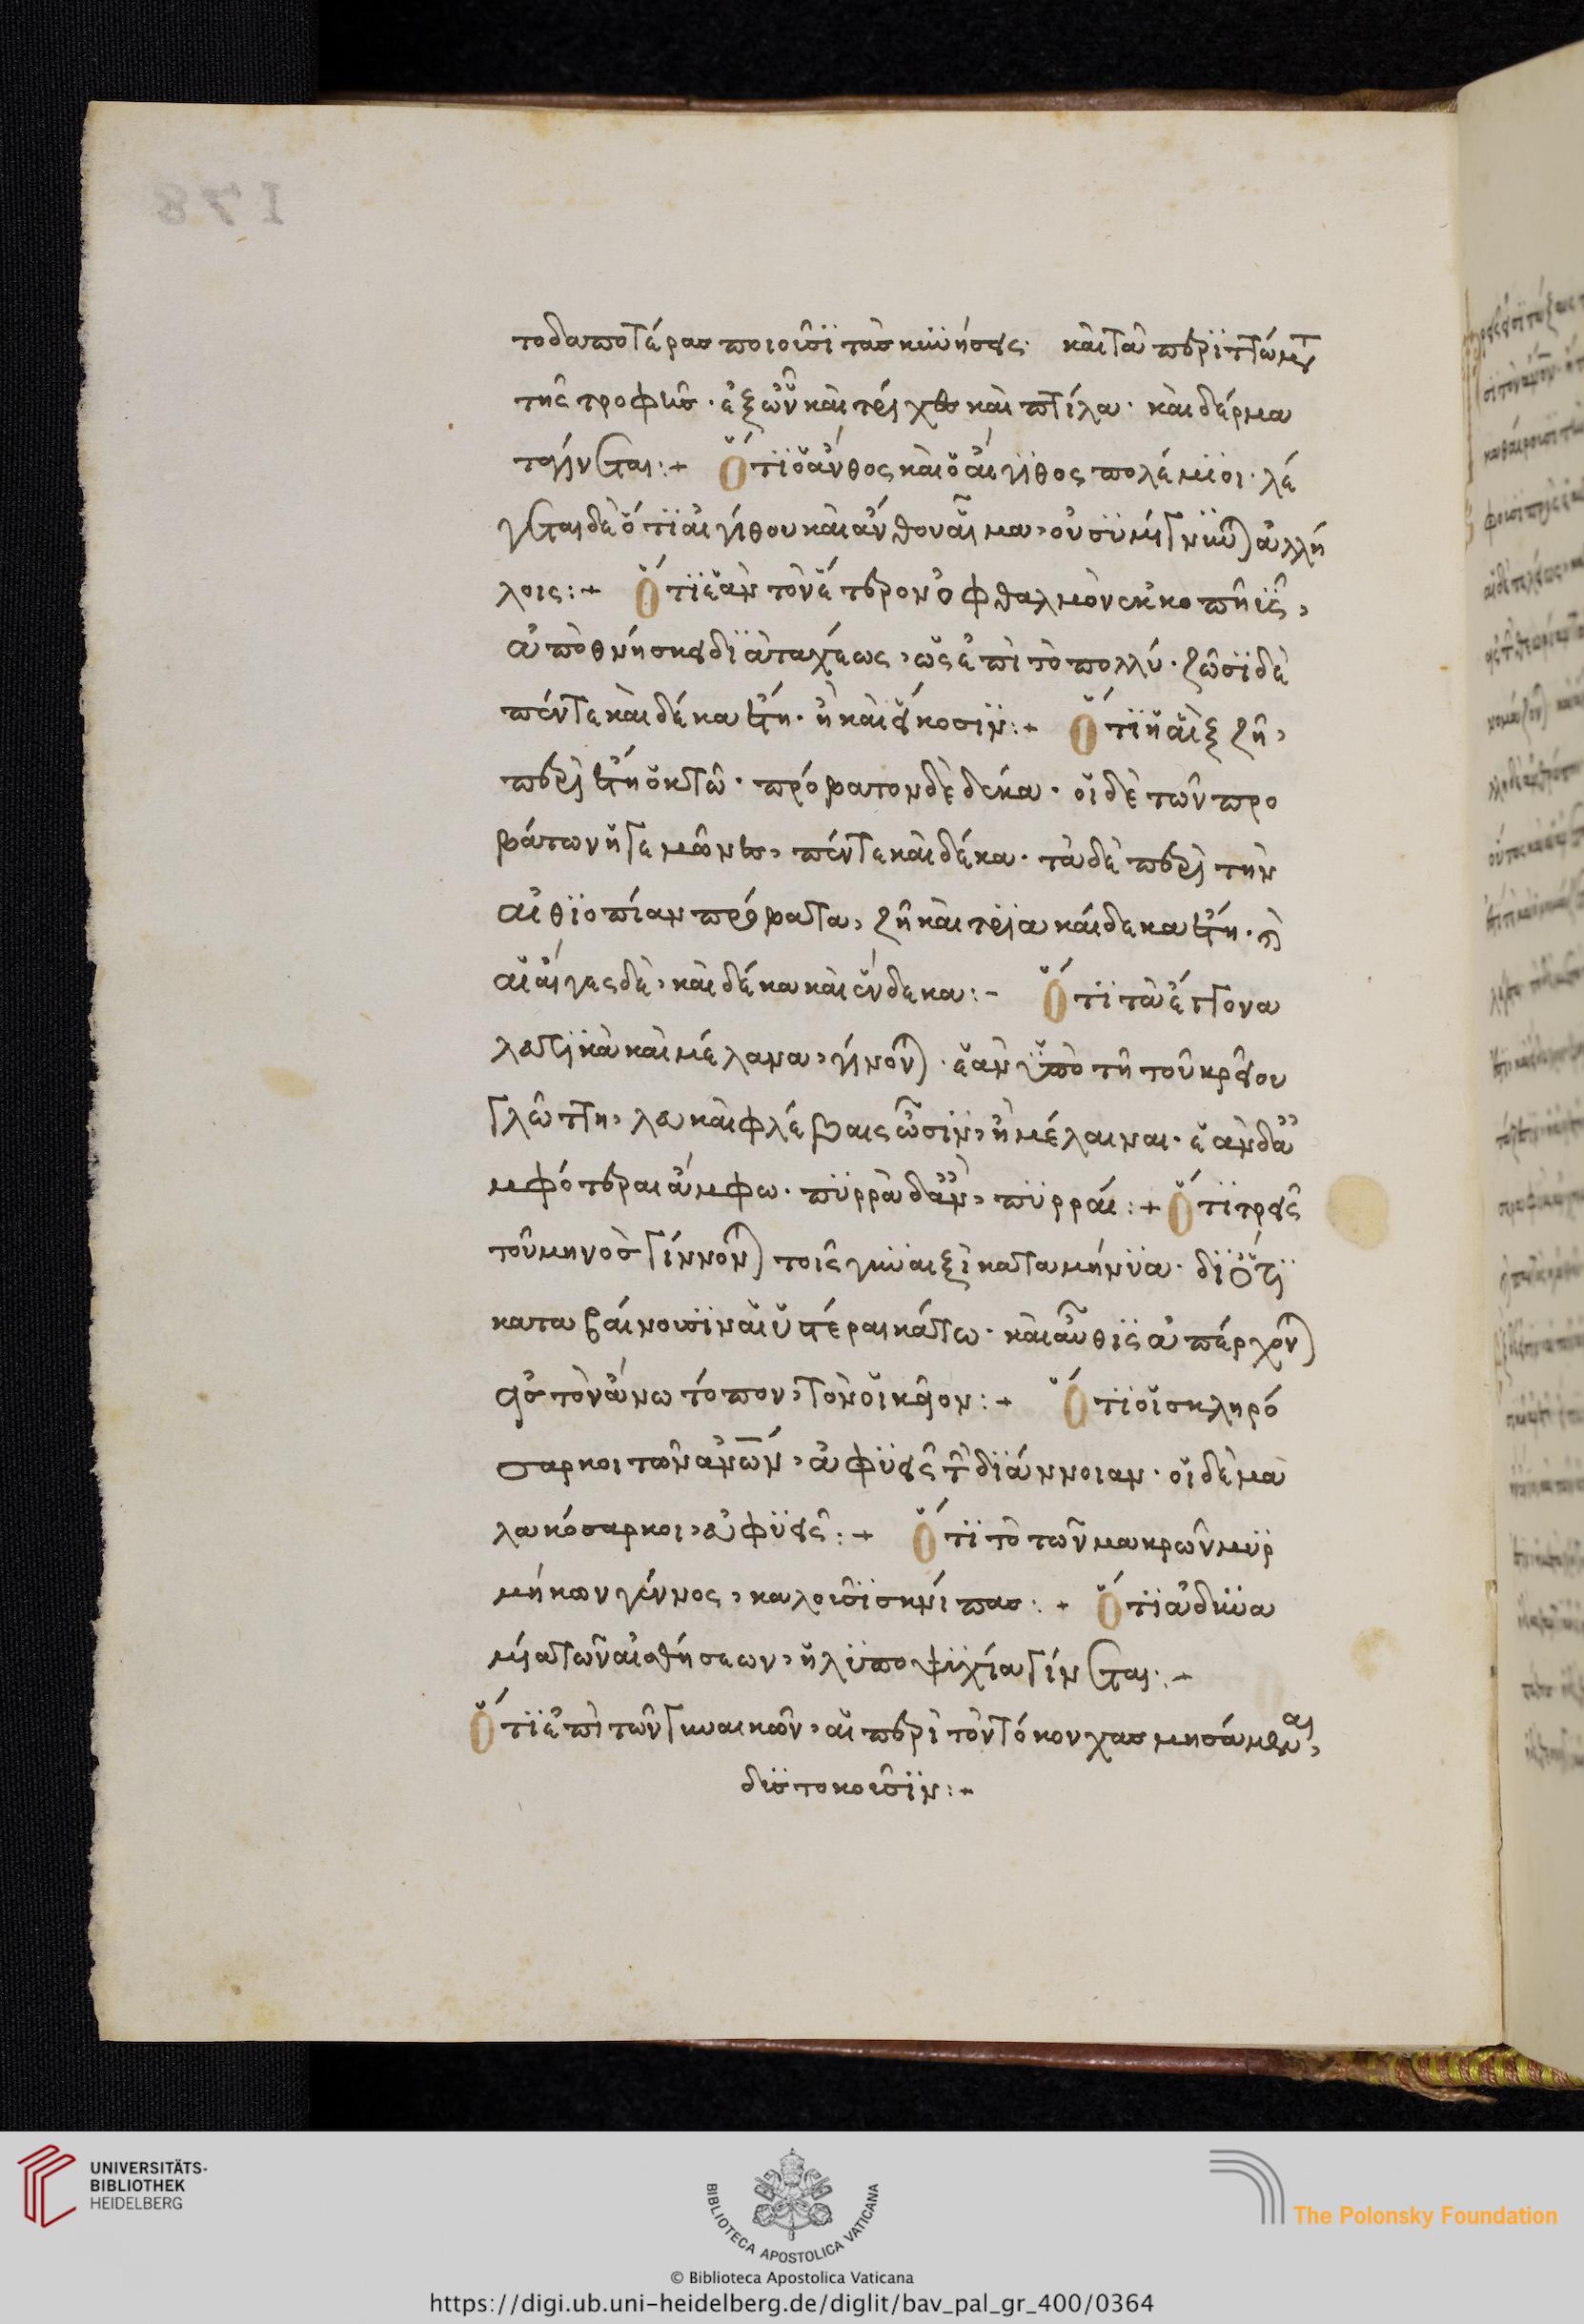 178
τοδαποτέρας ποιοῦσι τὰς κινήσεις· καὶ τὰ περιττώμτ
τῆς τροφῆς· ἐξ ὧν καὶ τρίχες καὶ πτίλα· καὶ δέρμα
τα γίνεται:+ Ὅτι ὁ ἄνθος καὶ ὁ αἴγιθος πολέμιοι· λέ
γεται δὲ ὅτι αἰγίθου καὶ ἄνθου αἷμα, οὐ συμμίγνυται ἀλλή
λοις:+ Ὅτι ἐὰν τὸν ἕτερον ὀφθαλμὸν ἐκκοπῆ ις,
ἀποθνήσκει διὰ ταχέως, ὡς ἐπὶ τὸ πολλύ· ζῶσι δὲ
πέντε καὶ δέκα ἔτη· ἢ καὶ εἴκοσιν:+ Ὅτι ἡ αἲξ ζῆ,
περὶ ἔτη ὀκτώ· πρόβατον δὲ δέκα· οἱ δὲ τῶν προ
βάτων ἡγεμῶνες, πέντε καὶ δέκα· τὰ δὲ περὶ τὴν
αἰθιοπίαν πρόβατα, ζῆ καὶ τρία καίδεκα ἔτη·
αἱ αἶγες δὲ, καὶ δέκα καὶ ἕνδεκα:- Ὅτι τὰ ἔγγονα
λευκὰ καὶ μέλανα, γίνονται· ἐὰν ὑπὸ τῆ τοῦ κρειοῦ
γλώττη, λευκαὶ φλέβαις ὦσιν, ἢ μέλαιναι· ἐὰν δὰ
μφότεραι ἄμφω· πυρρὰ δὰν, πυρραί:+ Ὅτι τρεῖς
τοῦ μηνὸς γίννονται τοῖς γυναιξὶ καταμήνια· διότι
καταβαίνουσιν αἱ ὑστέραι κάτω· καὶ αὖθις ἀπέρχονται
εἰς τὸν ἄνω τόπον, τὸν οἰκεῖον:+ Ὅτι οἱ σκληρό
σαρκοι τῶν ἀνῶν, ἀφυεῖς τὴν διάννοιαν· οἱ δὲ μα
λακόσαρκοι, εὐφυεῖς:+ Ὅτι τὸ τῶν μακρῶν μυρ
μήκων γέννος, καλοῦσι σκνίπας:+ Ὅτι ἀδυνα
μία τῶν αἰσθήσεων, ἡ λιποψυχία γίνεται:+
Ὅτι ἐπὶ τῶν γυναικῶν, αἱ περὶ τὸν τόκον χασμησάμεναι,
δυστοκοῦσιν:+
UNIVERSITÄTS-
BIBLIOTHEK
HEIDELBERG
BIBLIOTECA APOSTOLICA VATICANA
The Polonsky Foundation
© Biblioteca Apostolica Vaticana
https://digi.ub.uni-heidelberg.de/diglit/bav_pal_gr_400/0364